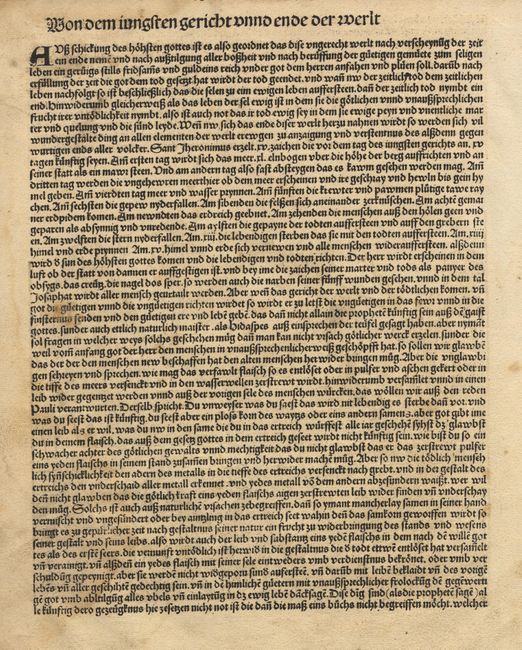 Von dem iungsten gericht vnnd ende der werlt
Auß schickung des höhsten gottes ist es also geordnet das dise vngerecht werlt nach verscheynũg der zeit
ein ende neme vnd nach außtilgung aller boßheit vnd nach berůffung der gütigen gemuete zum seligen
leben ein gerüigs stills fridsams vnd guldeins reich vnder got dem herren anfahen vnd plüen soll. darůb nach
erfüllung der zeit die got dem tod gesetzt hat wirdt der tod geendet. vnd wañ nw der zeitlich tod dem zeitlichen
leben nachfolgt so ist beschließlich das die selen zu eim ewigen leben auffersteen. dañ der zeitlich tod nymbt ein
end. Hinwiderumb gleicherweiß als das leben der sel ewig ist in dem sie die götlichen vnnd vnaußsprechlichen
frucht irer vntödlichkeit nymbt. also ist auch not das ir tod ewig sey in dem sie ewige peyn vnd vnentliche mar
ter vnd quelung vnd die sünd leyde. Weñ nw sich das ende diser werlt hertzu nahnen wirdt so werden sich vil
wundergestalte ding an allen elementen der werlt erewgen zu anzaigung vnd verstentnus des alßdenn gegen
wurtigen ends aller volcker. Sant Jheronimus erzelt .xv. zaichen die vor dem tag des iungsten gerichts an .xv
tagen künftig seyen. Am ersten tag wirdt sich das meer .xl. elnbogen vber die höhe der berg auffrichten vnd an
seiner statt als ein mawr steen. Vnd am andern tag also fast absteygen das es kawm gesehen werden mag. Am
dritten tag werden die vngehewrn meerthier ob dem meer erscheinen vnd ire geschray vnd hewln bis gein hy
mel geben. Am vierdten tag meer vnd wasser prynnen. Am fünften die krewter vnd pawmen plütige tawe ray
chen. Am sechsten die gepew nyderfallen. Am sibenden die felßen sich aneinander zerknüschen. Am achten gemai
ner erdpidem komen. Am newndten das erdreich geebnet. Am zehenden die menschen auß den hölen geen vnd
geparen als absynnig vnd wuredende. Am aylften die gepayne der todten aufferstein vnd auff den grebern ste
en. Am zwelften die stern nyderfallen. Am .xiii. die lebendigen sterben das sie mit den todten aufferstein. Am .xiiij
himel vnd erde prynnen Am .xv. himel vnnd erde sich vernewen vnd alle menschen widerauffersteen. alßdenn
wird ď sun des höhsten gottes komen vnd die lebendigen vnd todten richten. Der herr wirdt erscheinen in dem
luft ob der statt von dannen er auffgestigen ist. vnd bey ime die zaichen seiner marter vnd tods als panyer des
obsygs. das creutz, die nagel dos sper. so werden auch die narben seiner fünff wunden gesehen. vnnd in dem tal
Josaphat wirdt aller mensch geurtailt werden. Aber wenn das gericht der werlt vnd der tödtlichen komen. vñ
got die gütigen vnnd die vngütigen richten wirdet so wirdt er zu letst die vngütigen in das fewr vnnd in die
finsternus senden vnd den gütigen ere vnd lebē gebē. das dañ nicht allain die prophetē künftig sein auß dē gaist
gottes. sunder auch etlich naturlich maister. als hidaspes auß einsprechen der teüfel gesagt haben. aber nymāt
sol fragen in welcher weys solchs geschehen müg dañ man kan nicht vrsach götlicher werck erzelen. sunder die
weil vorn anfang got der herr den menschen in vnaußsprechenlicher weyß geschöpfft hat. so sollen wir glawbē
das der der den menschen new beschaffen hat den alten menschen herwider bringen müg. Aber die vnglawbi
gen schreyen vnd sprechen. wie mag das verfawlt flaisch so es entlöset oder in pulfer vnd aschen gekert oder in
die tiffe des meers versenckt vnd in den wasserwellen zerstrewt wirdt. hinwiderumb versamlet vnnd in einen
leib wider gegentzt werden vnnd auß der vorigen sele des menschen würcken. das wöllen wir auß den reden
Pauli verantwurten. Derselb spricht. Du vnweyser was du saest das wirdt nit lebendig es sterbe dañ vor. vnd
was du saest das ist künftig. du saest aber ein ploßs korn des waytzs oder eins andern samen ꝛc. aber got gibt ime
einen leib als er wil. was du nw in den same die du in das ertreich wůrffest alle iar geschehē syhst dz glawbst
du in deinem flaisch. das auß dem gesetz gottes in dem ertreich geseet wirdt nicht künftig sein. wie bist du so ein
schwacher achter des götlichen gewalts vnnd mechtigkeit das du nicht glawbst das er das zerstrewt pulfer
eins yeden flaischs in seinem stand zusamen bringen vnd herwider machē müg. Aber so nw die tödlich mensch
lich synschicklichkeit den adern des metalls in die tieffe des ertreichs versenckt nach grebt. vnd in der gestalt des
ertreichs den vnderschaid aller metall erkennet. vnd yedes metall von dem andern abzesundern waißt. wer wil
denn nicht glawben das die götlich kraft eins yeden flaischs aigen zerstrewten leib wider finden vñ vnderschay
den müg. Solchs ist auch auß naturlichē vrsachen zebegreiffen. dañ so ymant mancherlay samen in seiner hand
vermischt vnd vngesündert oder bey aintzling in das ertreich seet wahin dañ das samkorn geworffen wirdt so
bringt es zu gepůrlicher zeit nach gestaltnus seiner natur ein frucht zu widerbringung des stands vnd wesens
seiner gestalt vnd seins leibs. also wirdt auch der leib vnd substantz eins yedē flaischs in dem nach dē willē got
tes als des ersten seers. die vernunft vntödlich ist herwid̓ in die gestaltnus die ď todt ettwē entlöset hat versamelt
vñ verainigt. vñ alßdeñ ein yedes flaisch mit seiner sele eintweders vmb verdienßnus bekrönet. oder vmb ver
schuldüg gepeynigt. aber sie werdē nicht widgeporn sunder auferstēē. vñ darůb mit leibē beklaidt vñ des vorigē
lebēs vñ aller geschihtē gedechtig sein. vñ in dē himlichē gůtern mit vnaußsprechlicher frolockůg dē gegewern
gē got vmb abtilgůg alles vbels vñ einlaytũg in dz ewig lebē dācksagē. Dise dīg sind (als die prophetē sagē) al
le künftig dero gezeůgknus hie zesetzen nicht not ist die dañ die maß eins bůchs nicht begreiffen möcht. welcher